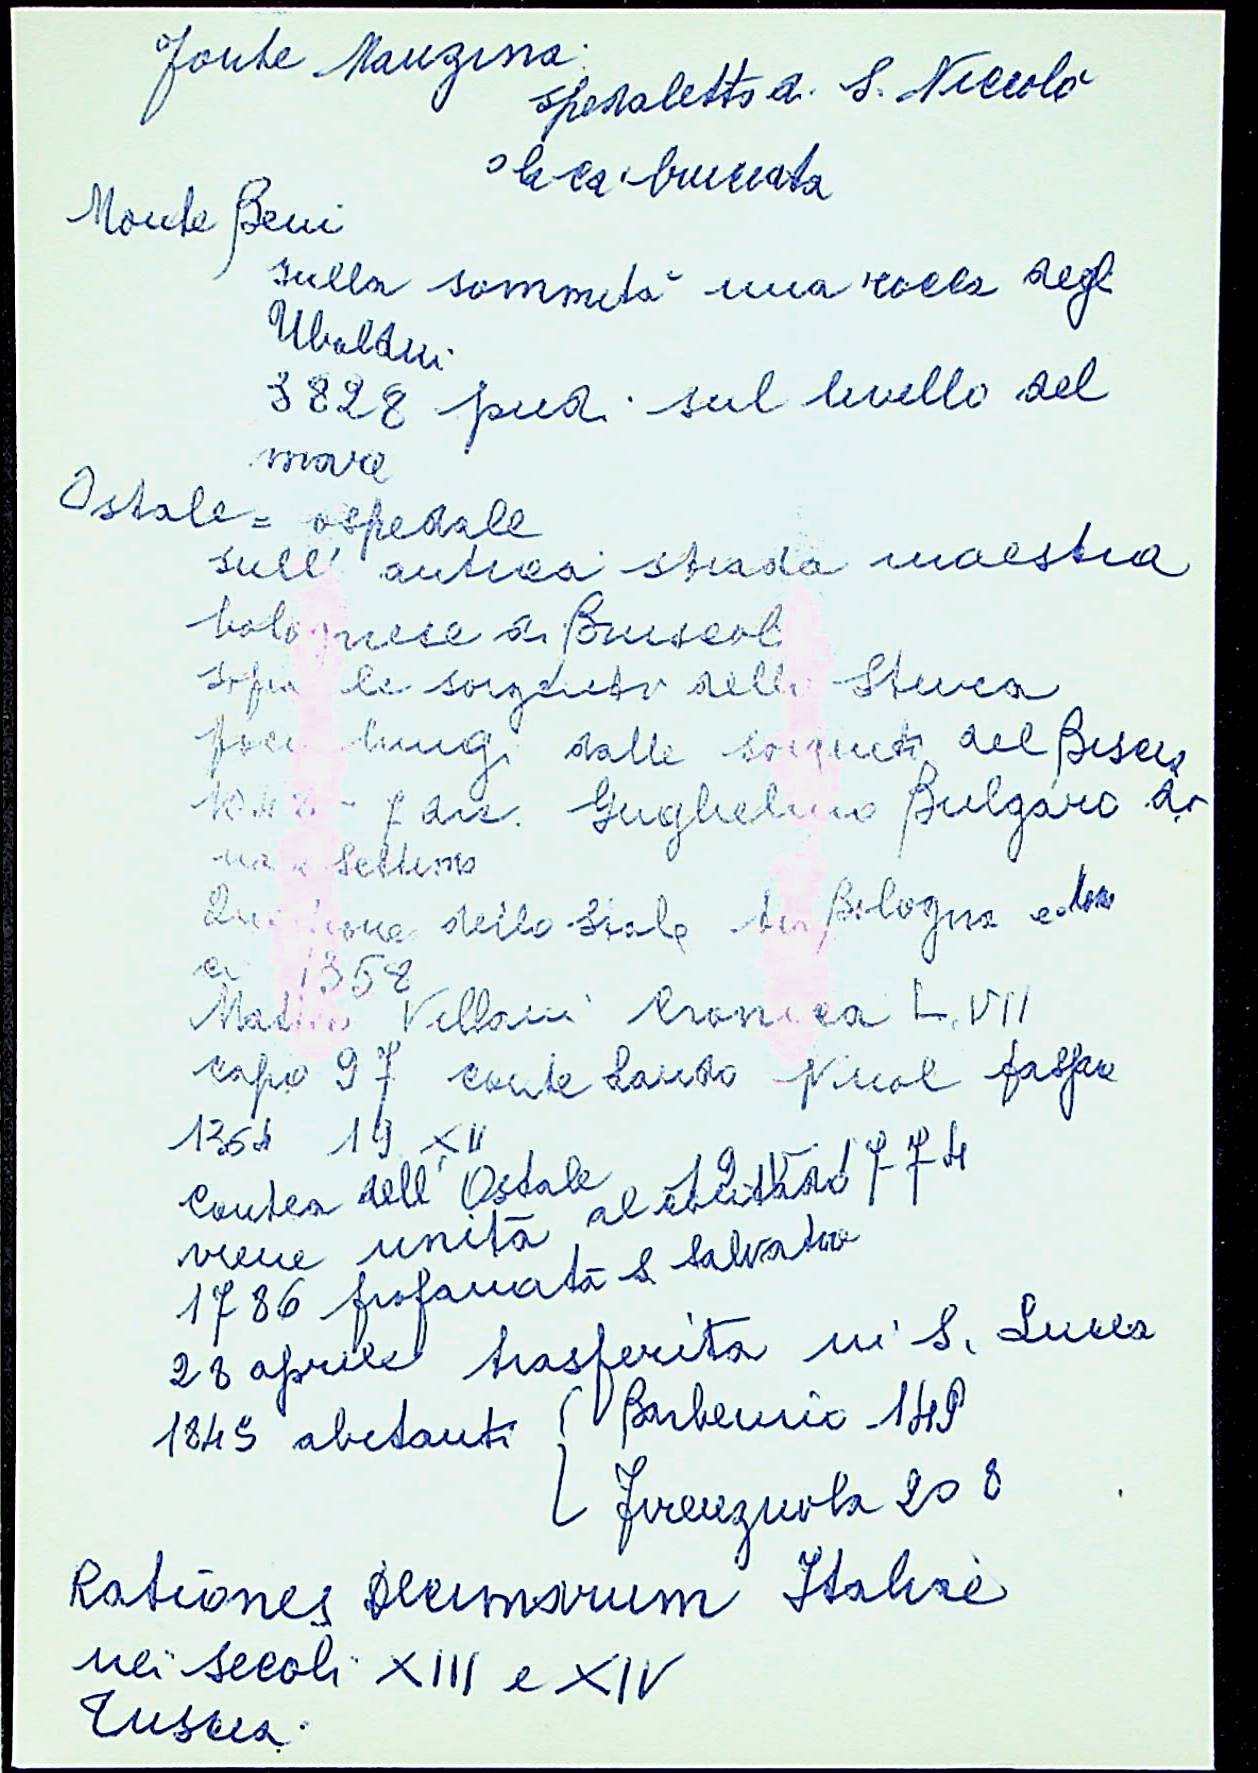 Fonte Manzina:
spedaletto di S. Niccolò
o la ca' bruciata
Monte Beni
sulla sommità una rocca degli
Ubaldini
3828 piedi sul livello del
mare
Ostale = ospedale
sull' antica strada maestra
bolognese di Bruscoli
sopra le sorgenti della Stura
poco lungi dalle sorgenti del
1048 - 7 dic. Guglielmo Bulgaro di
Settimo
dello Stale tra Bologna e
1358
Matteo Villani Cronica L. VII
capo 97 conte Lando
19 XII
Contea dell' Ostale 1774
viene unità al contado
1786 profanata S. Salvatore
28 aprile trasferita in S. Lucia
1845 abitanti { Barberino 149
{ Firenzuola 208
Rationes Decimarum Italiae
nei secoli XIII e XIV
Tuscia.